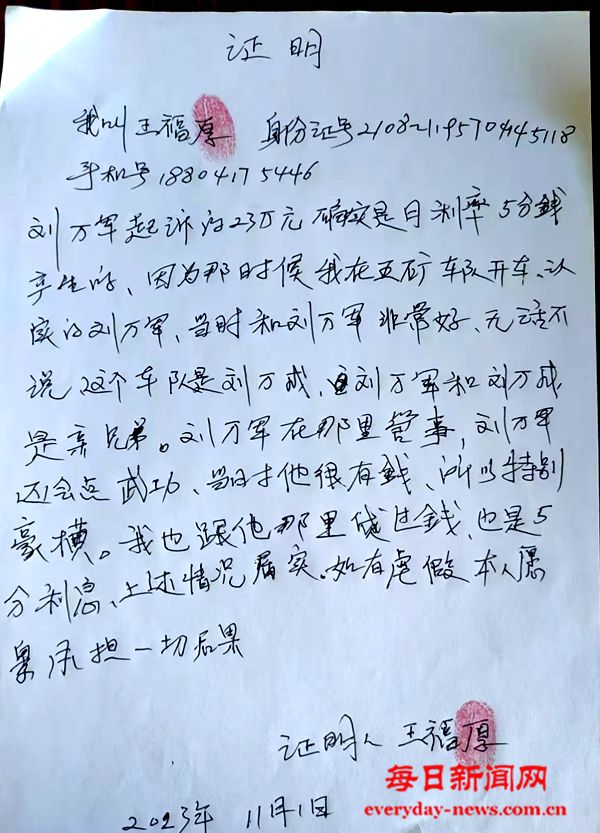 证明
我叫王福厚 身份证号210821195704145118
手机号18804175446
刘万军起诉的23万元确实是月利率5分錢
产生的、因为那时候我在五矿车队开车、认
实的刘万军、当时和刘万军非常好、无话不
说 这个车队是刘万成、刘万军和刘万成
是亲兄弟。刘万军在那里管事，刘万军
还会点武功、当时他很有錢、所以特别
豪横。我也跟他那里借过錢、也是5
分利息、上述情况属实。如有虚假本人愿
意承担一切后果
证明人 王福厚
2023年 11月1日
每日新闻网
everyday-news.com.cn